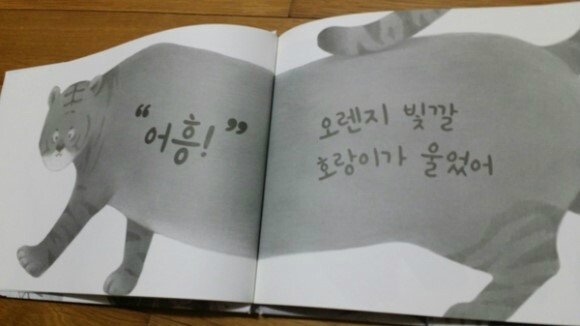 “어흥!”
오렌지 빛깔
호랑이가 울었어